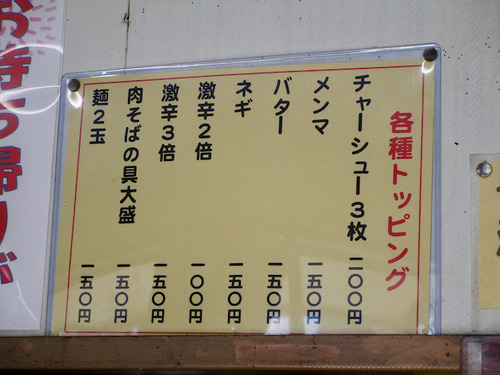 各種トッピング
チャーシュー3枚 二〇〇円
メンマ 一五〇円
バター 一五〇円
ネギ 一五〇円
激辛2倍 一〇〇円
激辛3倍 一五〇円
肉そばの具大盛 一五〇円
麺2玉 一五〇円
お持ち帰りが